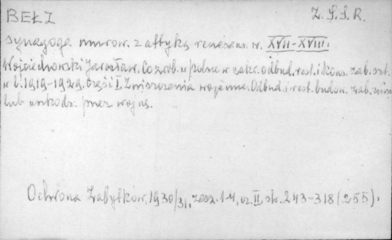 BEŁZ
Z. S. S. R.
synagoga murow. z attyką renesans. w. XVII-XVIII.
Wojciechowski Jarosław. Co zrob. w Polsce w zakr. odbud. rest. i kons. zab. szt.
w l. 1919-1929. Część I. Zniszczenia wojenne. Odbud. i rest. budow. zab. znisz.
lub uszkodz. przez wojnę.
Ochrona Zabytków, 1930/31, zesz. 1-4, cz. II, str. 243-318 (255).